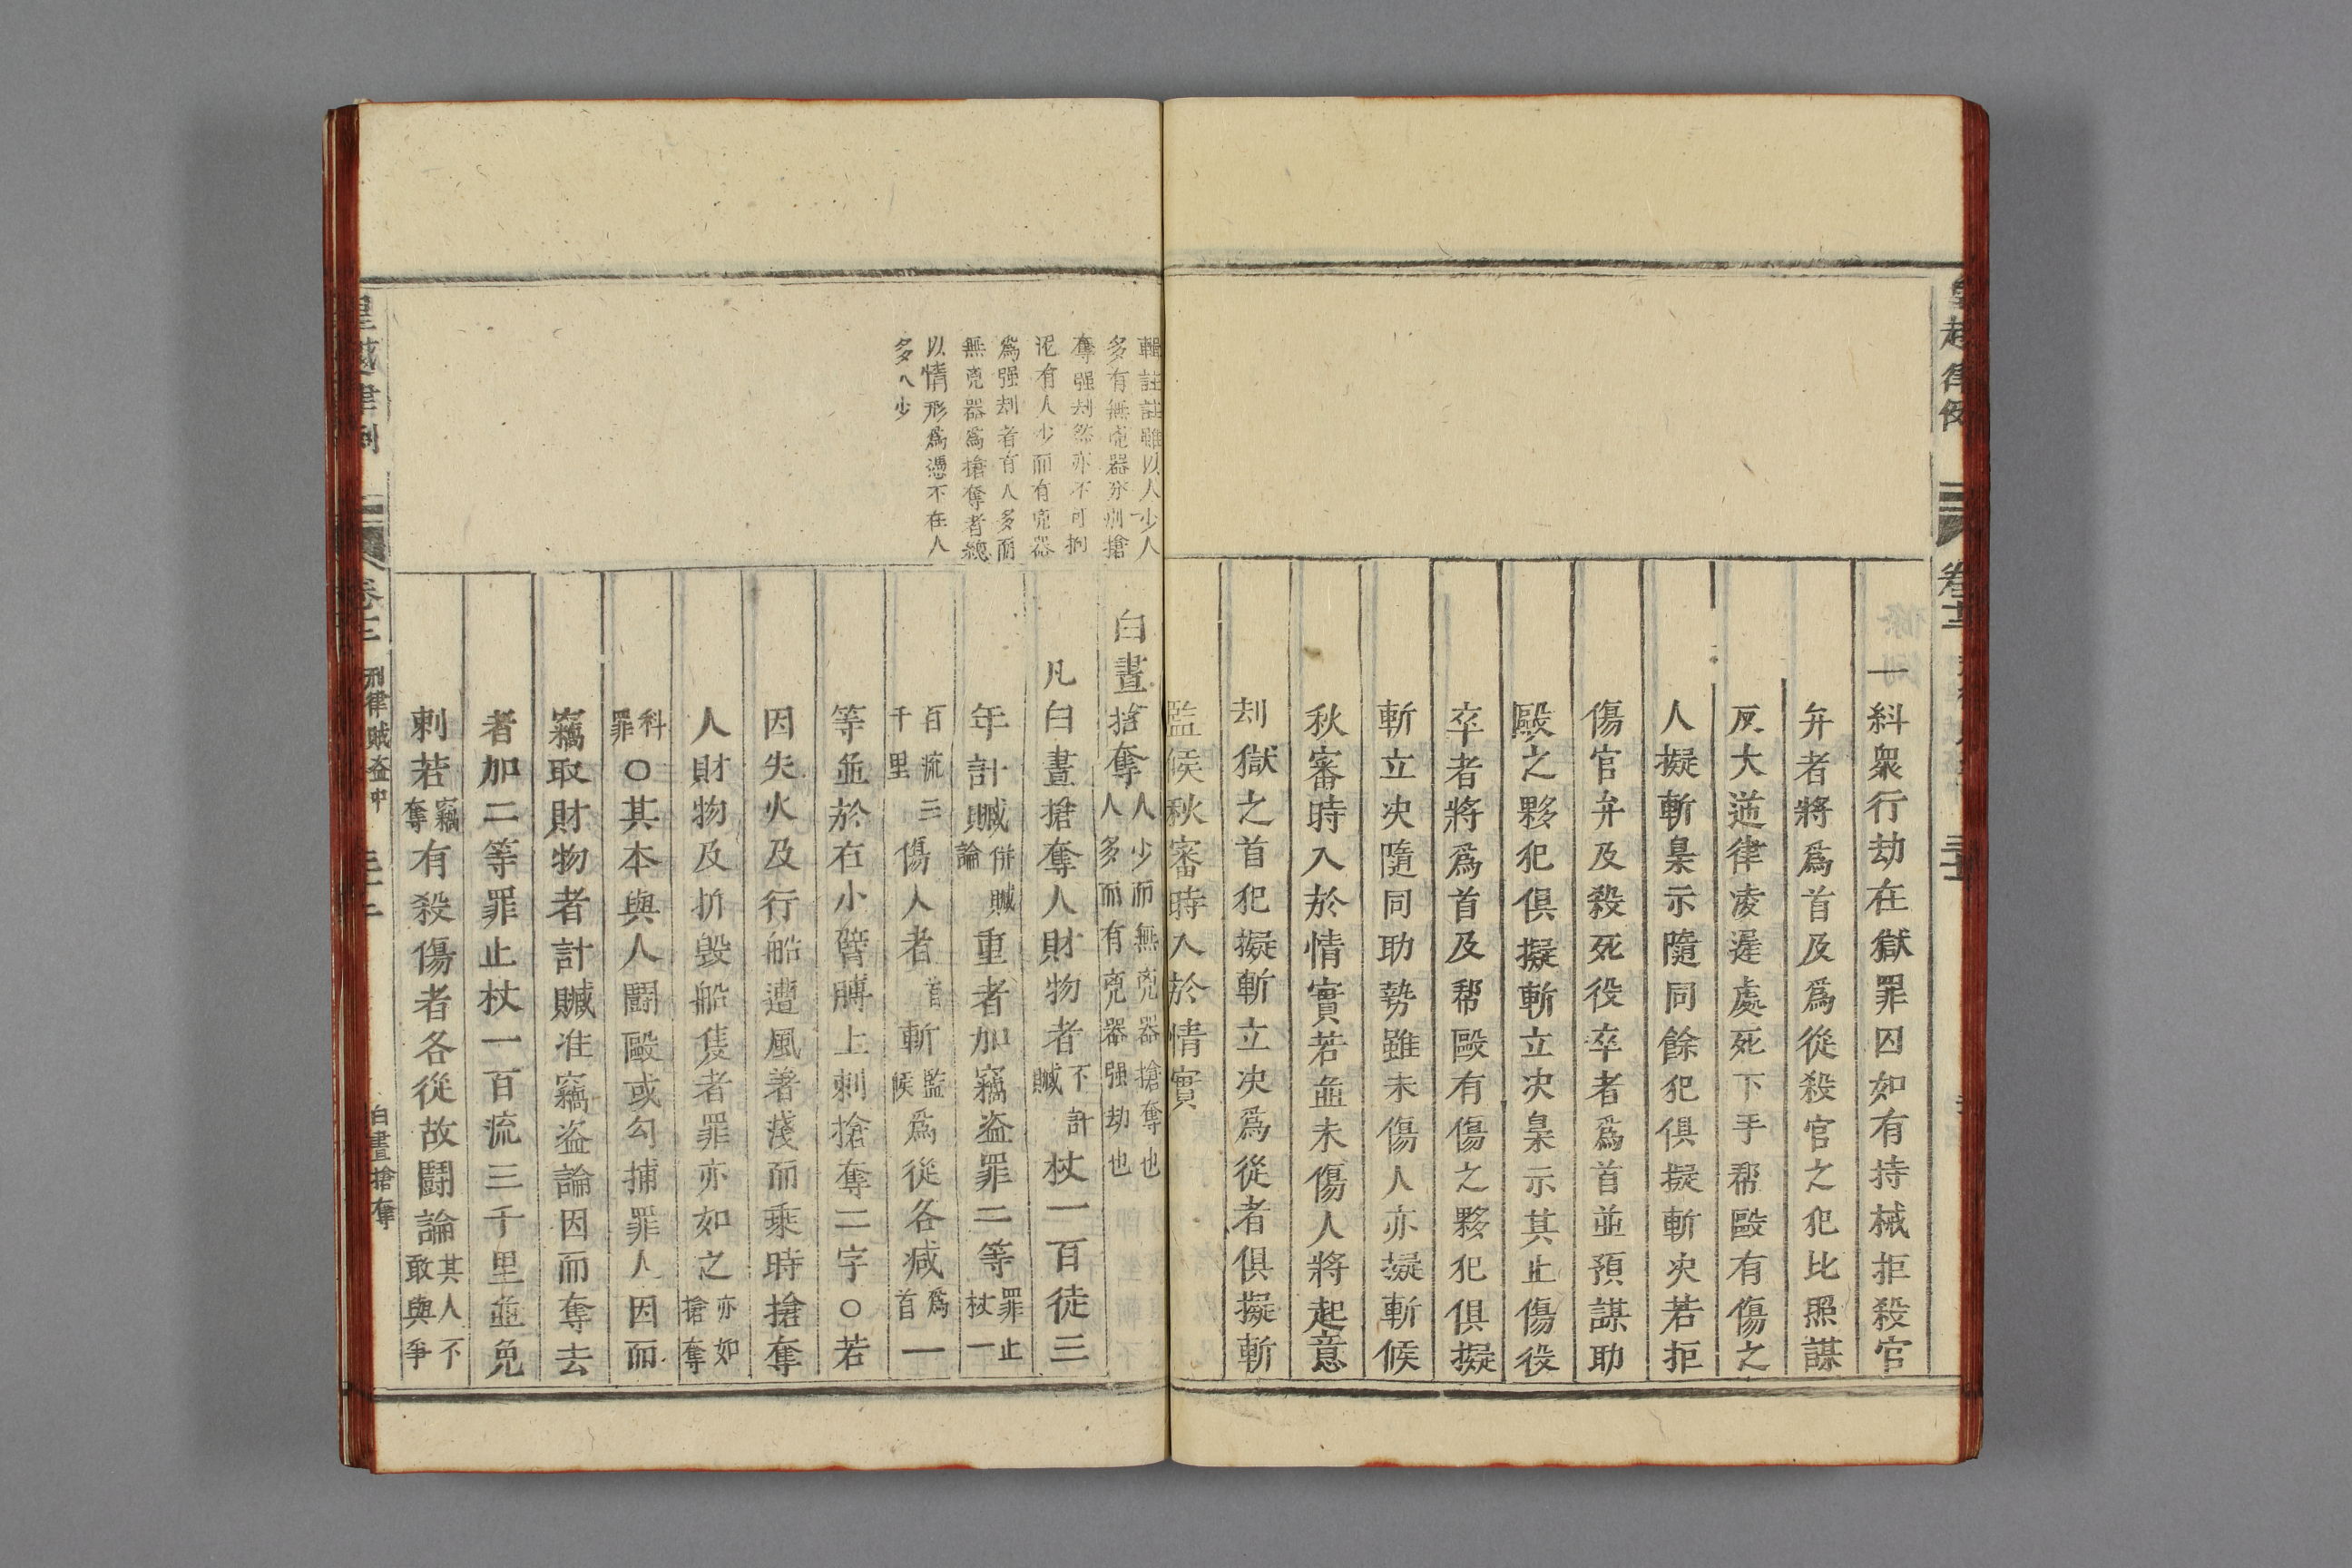 一糾衆行劫在獄罪囚如有持械拒殺官
弁者將爲首及爲從殺官之犯比照謀
反大逆律凌遲處死下手帮毆有傷之
人擬斬梟示隨同餘犯俱擬斬决若拒
傷官弁及殺死役卒者爲首並預謀助
毆之夥犯俱擬斬立决梟示其止傷役
卒者將爲首及帮毆有傷之夥犯俱擬
斬立决隨同助勢雖未傷人亦擬斬候
秋審時入於情實若並未傷人將起意
刦獄之首犯擬斬立决爲從者俱擬斬
監候秋審時入於情實
輯註註雖以人少人
多有無兇器分別搶
奪强刦然亦不可拘
泥有人少而有兇器
爲强刦者有人多而
無兇器爲搶奪者總
以情形爲憑不在人
多人少
白晝搶奪人少而無兇器搶奪也人多而有兇器强劫也
凡白晝搶奪人財物者不計贓杖一百徒三
年計贓併贓論重者加竊盗罪二等罪止杖一
百流三千里傷人者首斬監候爲從各减爲首一
等並於右小臂膊上刺搶奪二字○若
因失火及行船遭風著淺而乘時搶奪
人財物及拆毀船隻者罪亦如之亦如搶奪
科罪○其本與人鬪毆或勾捕罪人因而
竊取財物者計贓准竊盗論因而奪去
者加二等罪止杖一百流三千里並免
刺若竊奪有殺傷者各從故鬪論其人不敢與爭
皇越律例
刑律賊盗中
白晝搶奪